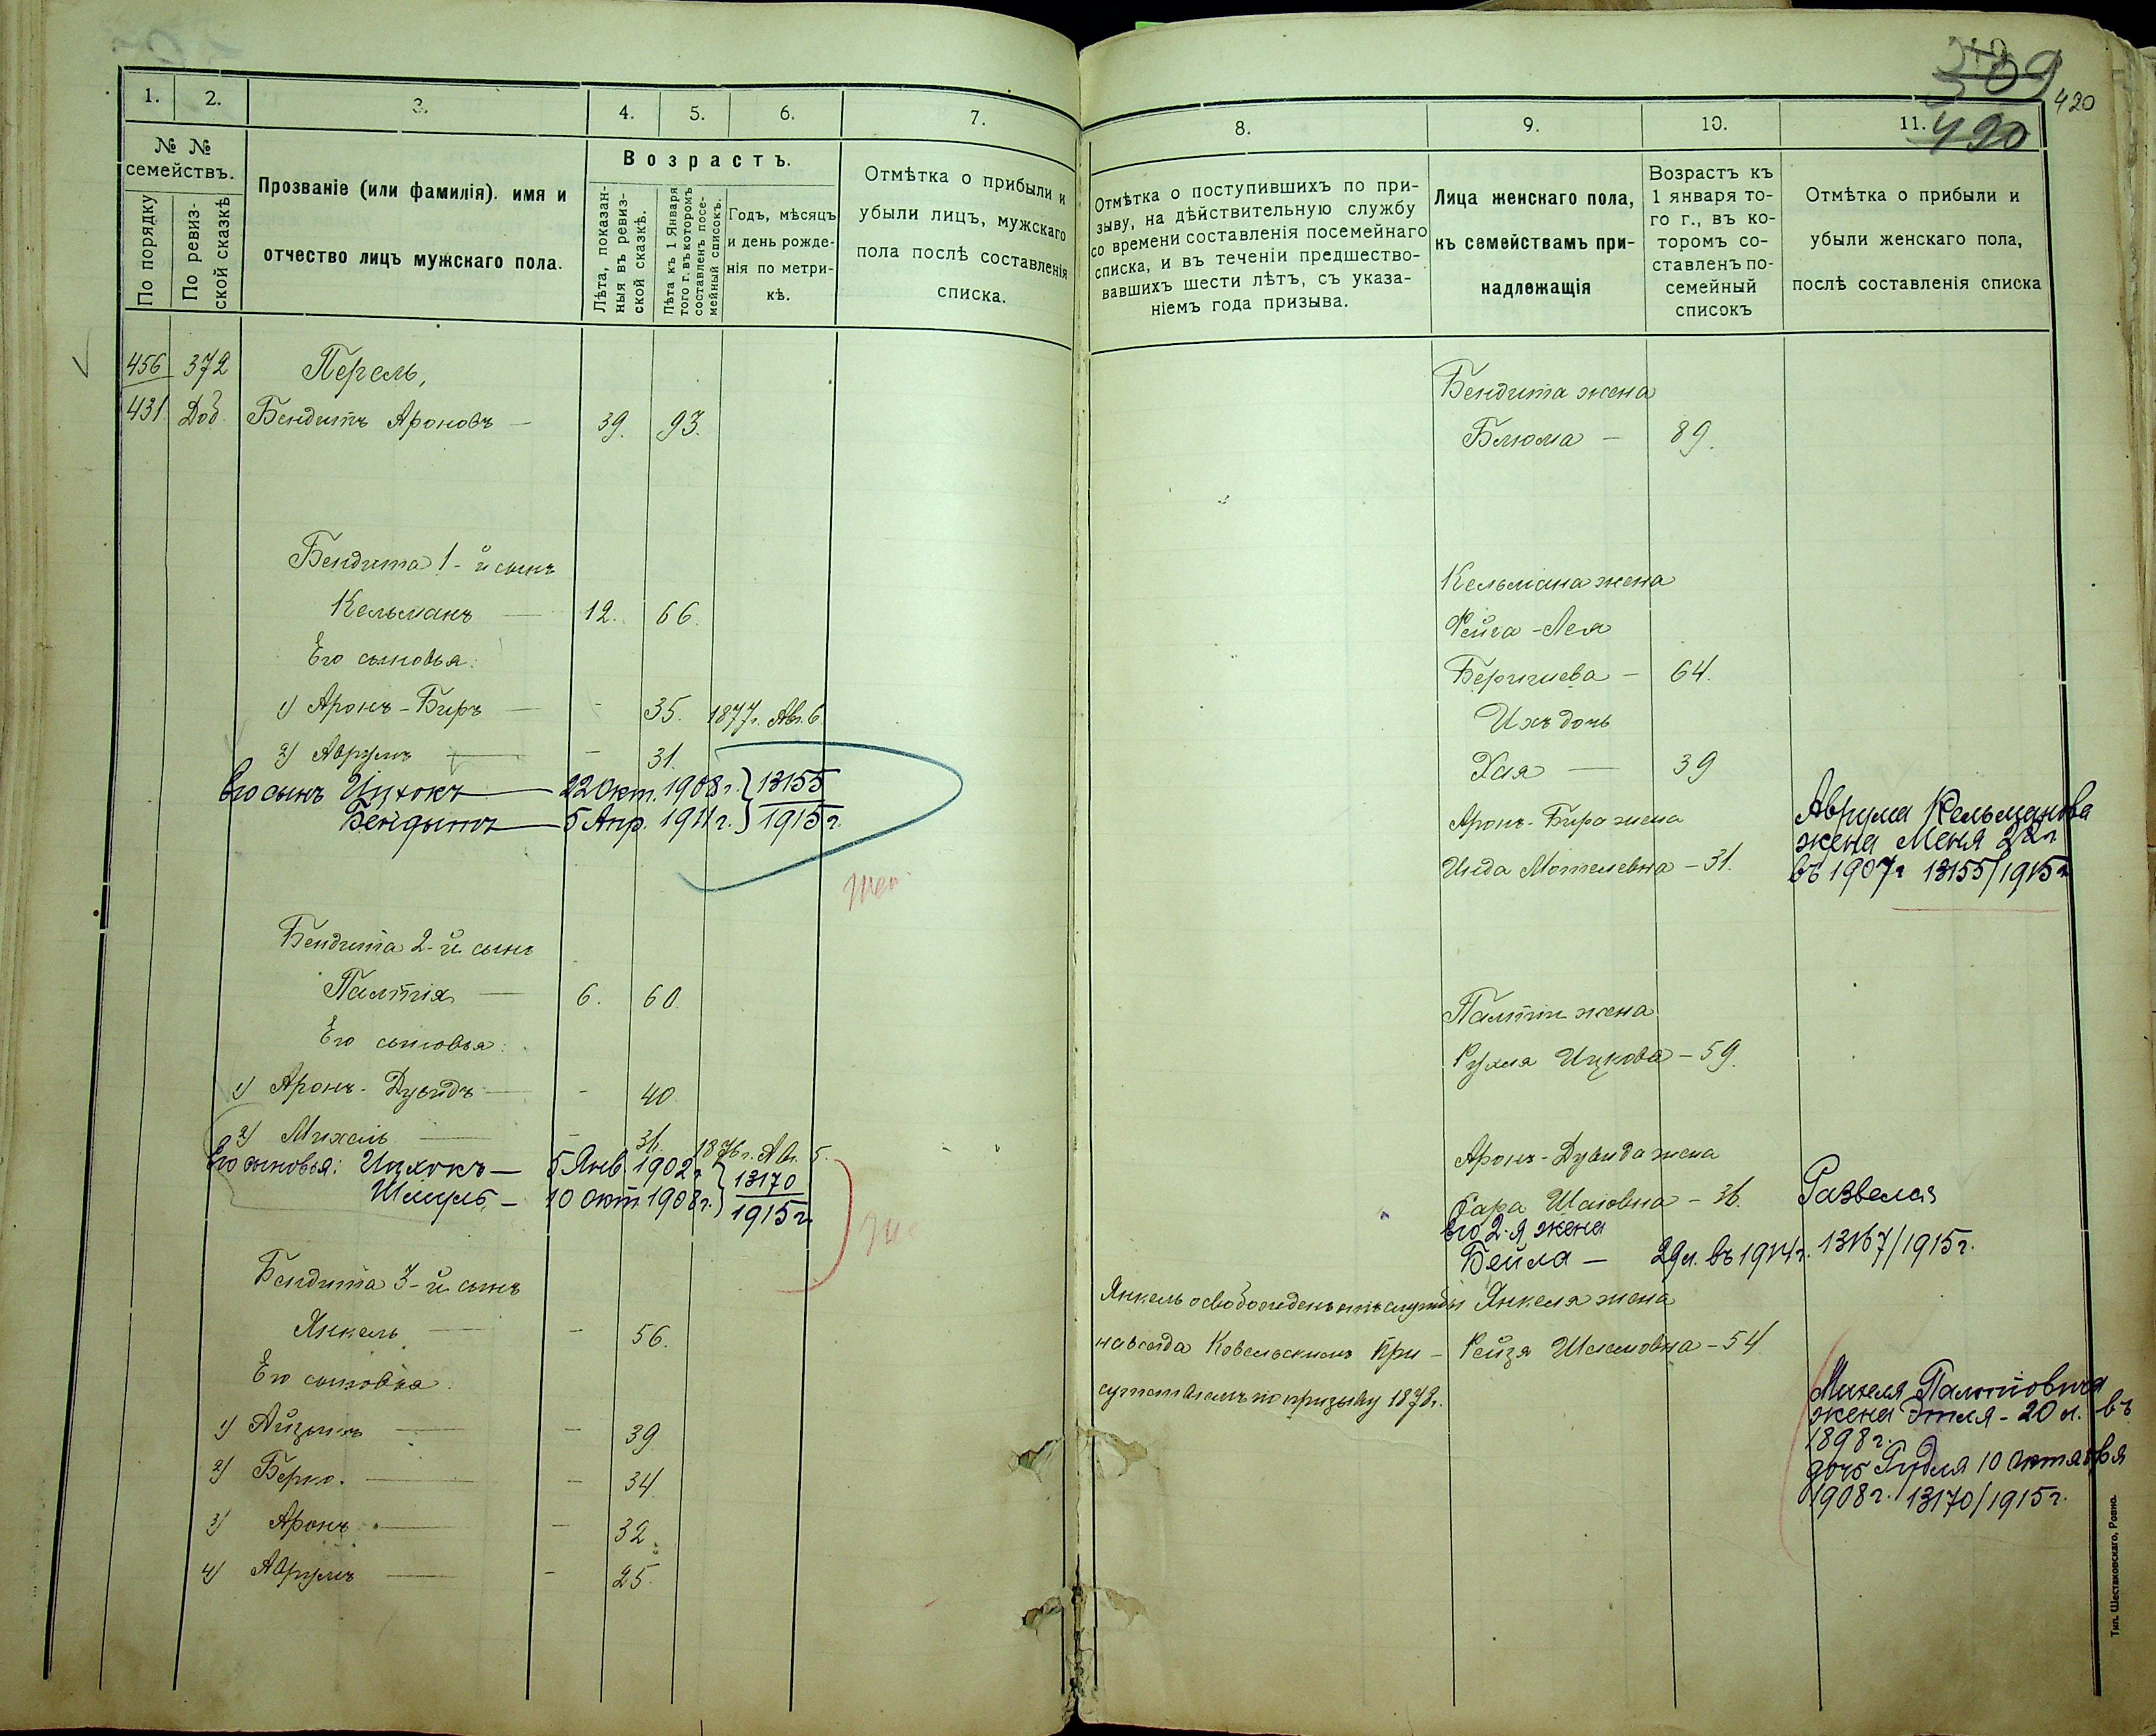 1.
2.
3.
4.
5.
6.
7.
№ №
семействъ.
По порядку
По ревиз-
ской сказкѣ
Прозваніе (или фамилія). имя и
отчество лицъ мужскаго пола.
Возрастъ.
Лѣта, показан-
ныя въ ревиз-
ской сказкѣ.
Лѣта къ 1 Января
того г. въ которомъ
составленъ посе-
мейный списокъ.
Годъ, мѣсяцъ
и день рожде-
нія по метри-
кѣ.
Отмѣтка о прибыли и
убыли лицъ, мужскаго
пола послѣ составленія
списка.
456 372 Перель,
431 Доб. Бендитъ Ароновъ — 39. 93.
Бендита 1-й сынъ
Кельманъ — 12. 66.
Его сыновья:
1) Аронъ-Биръ — - 35. 1877г. Авг. 6
2) Аврумъ — - 31.
Его сынъ Ицхокъ — 22 Окт. 1908г. } 13155
Бендытъ — 5 Апр. 1911г. } 1915г.
Бендита 2-й сынъ
Палтія — 6. 60
Его сыновья:
1) Аронъ-Дувидъ — - 40
2) Михель — - 36. 1876г. Ав. 5.
Его сыновья: Ицхокъ — 5 Янв. 1902г. } 13170
Шмуль — 10 Окт. 1908г. } 1915г.
Бендита 3-й сынъ
Янкель — - 56.
Его сыновья.
1) Айзыкъ — - 39
2) Берко. — - 34
3) Аронъ — - 32
4) Аврумъ — - 25.
509
420
420
8.
9.
10.
11.
Отмѣтка о поступившихъ по при-
зыву, на дѣйствительную службу
со времени составленія посемейнаго
списка, и въ теченіи предшество-
вавшихъ шести лѣтъ, съ указа-
ніемъ года призыва.
Лица женскаго пола,
къ семействамъ при-
надлежащія
Возрастъ къ
1 января то-
го г., въ ко-
торомъ со-
ставленъ по-
семейный
списокъ
Отмѣтка о прибыли и
убыли женскаго пола,
послѣ составленія списка
Бендита жена
Блюма — 89.
Кельмана жена
Фейга-Лея
Беришева — 64.
Ихъ дочь
Хая — 39
Аронъ-Бира жена
Инда Мотелевна — 31.
Аврума Кельманова
жена Меня 22л
въ 1907г 13155/1915г
Палтіи жена
Рухля Ицкова — 59.
Аронъ-Дувида жена
Сара Шаіовна — 36. Развелась
Его 2-я жена
Бейла — 29л. въ 1914г. 13167/1915г.
Янкель освобожденъ отъ службы
навсегда Ковельскимъ При-
сутствіемъ по призыву 1878г.
Янкеля жена
Рейзя Шлемовна — 54
Михеля Палтіовича
жена Этля - 20 л. въ
1898г.
дочь Гудля 10 Октября
1908г. 13170/1915г.
Тип. Шестаковскаго, Ровно.